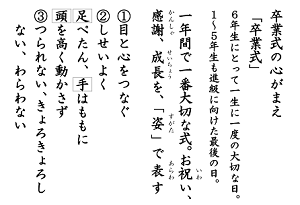 卒業式の心がまえ
「卒業式」
6年生にとって一生に一度の大切な日。
1~5年生も進級に向けた最後の日。
一年間で一番大切な式。お祝い、
感謝、成長を、「姿」で表す
①目と心をつなぐ
②しせいよく
足ぺたん、手はももに
頭を高く動かさず
③つられない、きょろきょろし
ない、わらわない